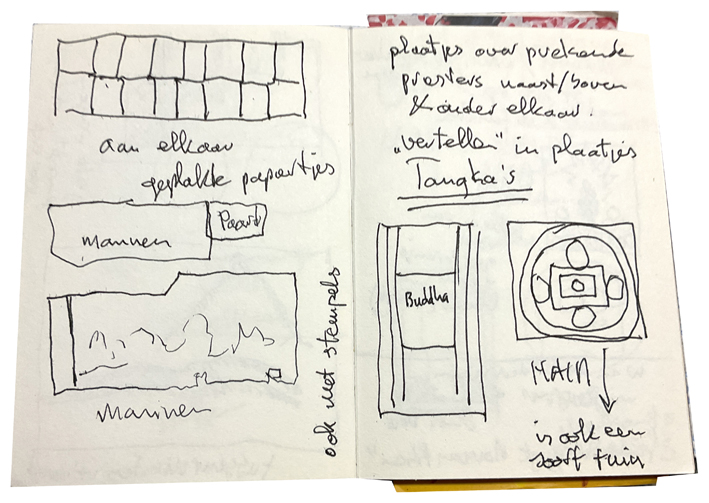 aan elkaar
geplakte papiertjes
mannen
Paard
Mannen
ook met stempels
plaatjes over
priesters naast/boven
& onder elkaar.
„vertellen" in plaatjes
Tangka's
Buddha
is ook een
soort tuin